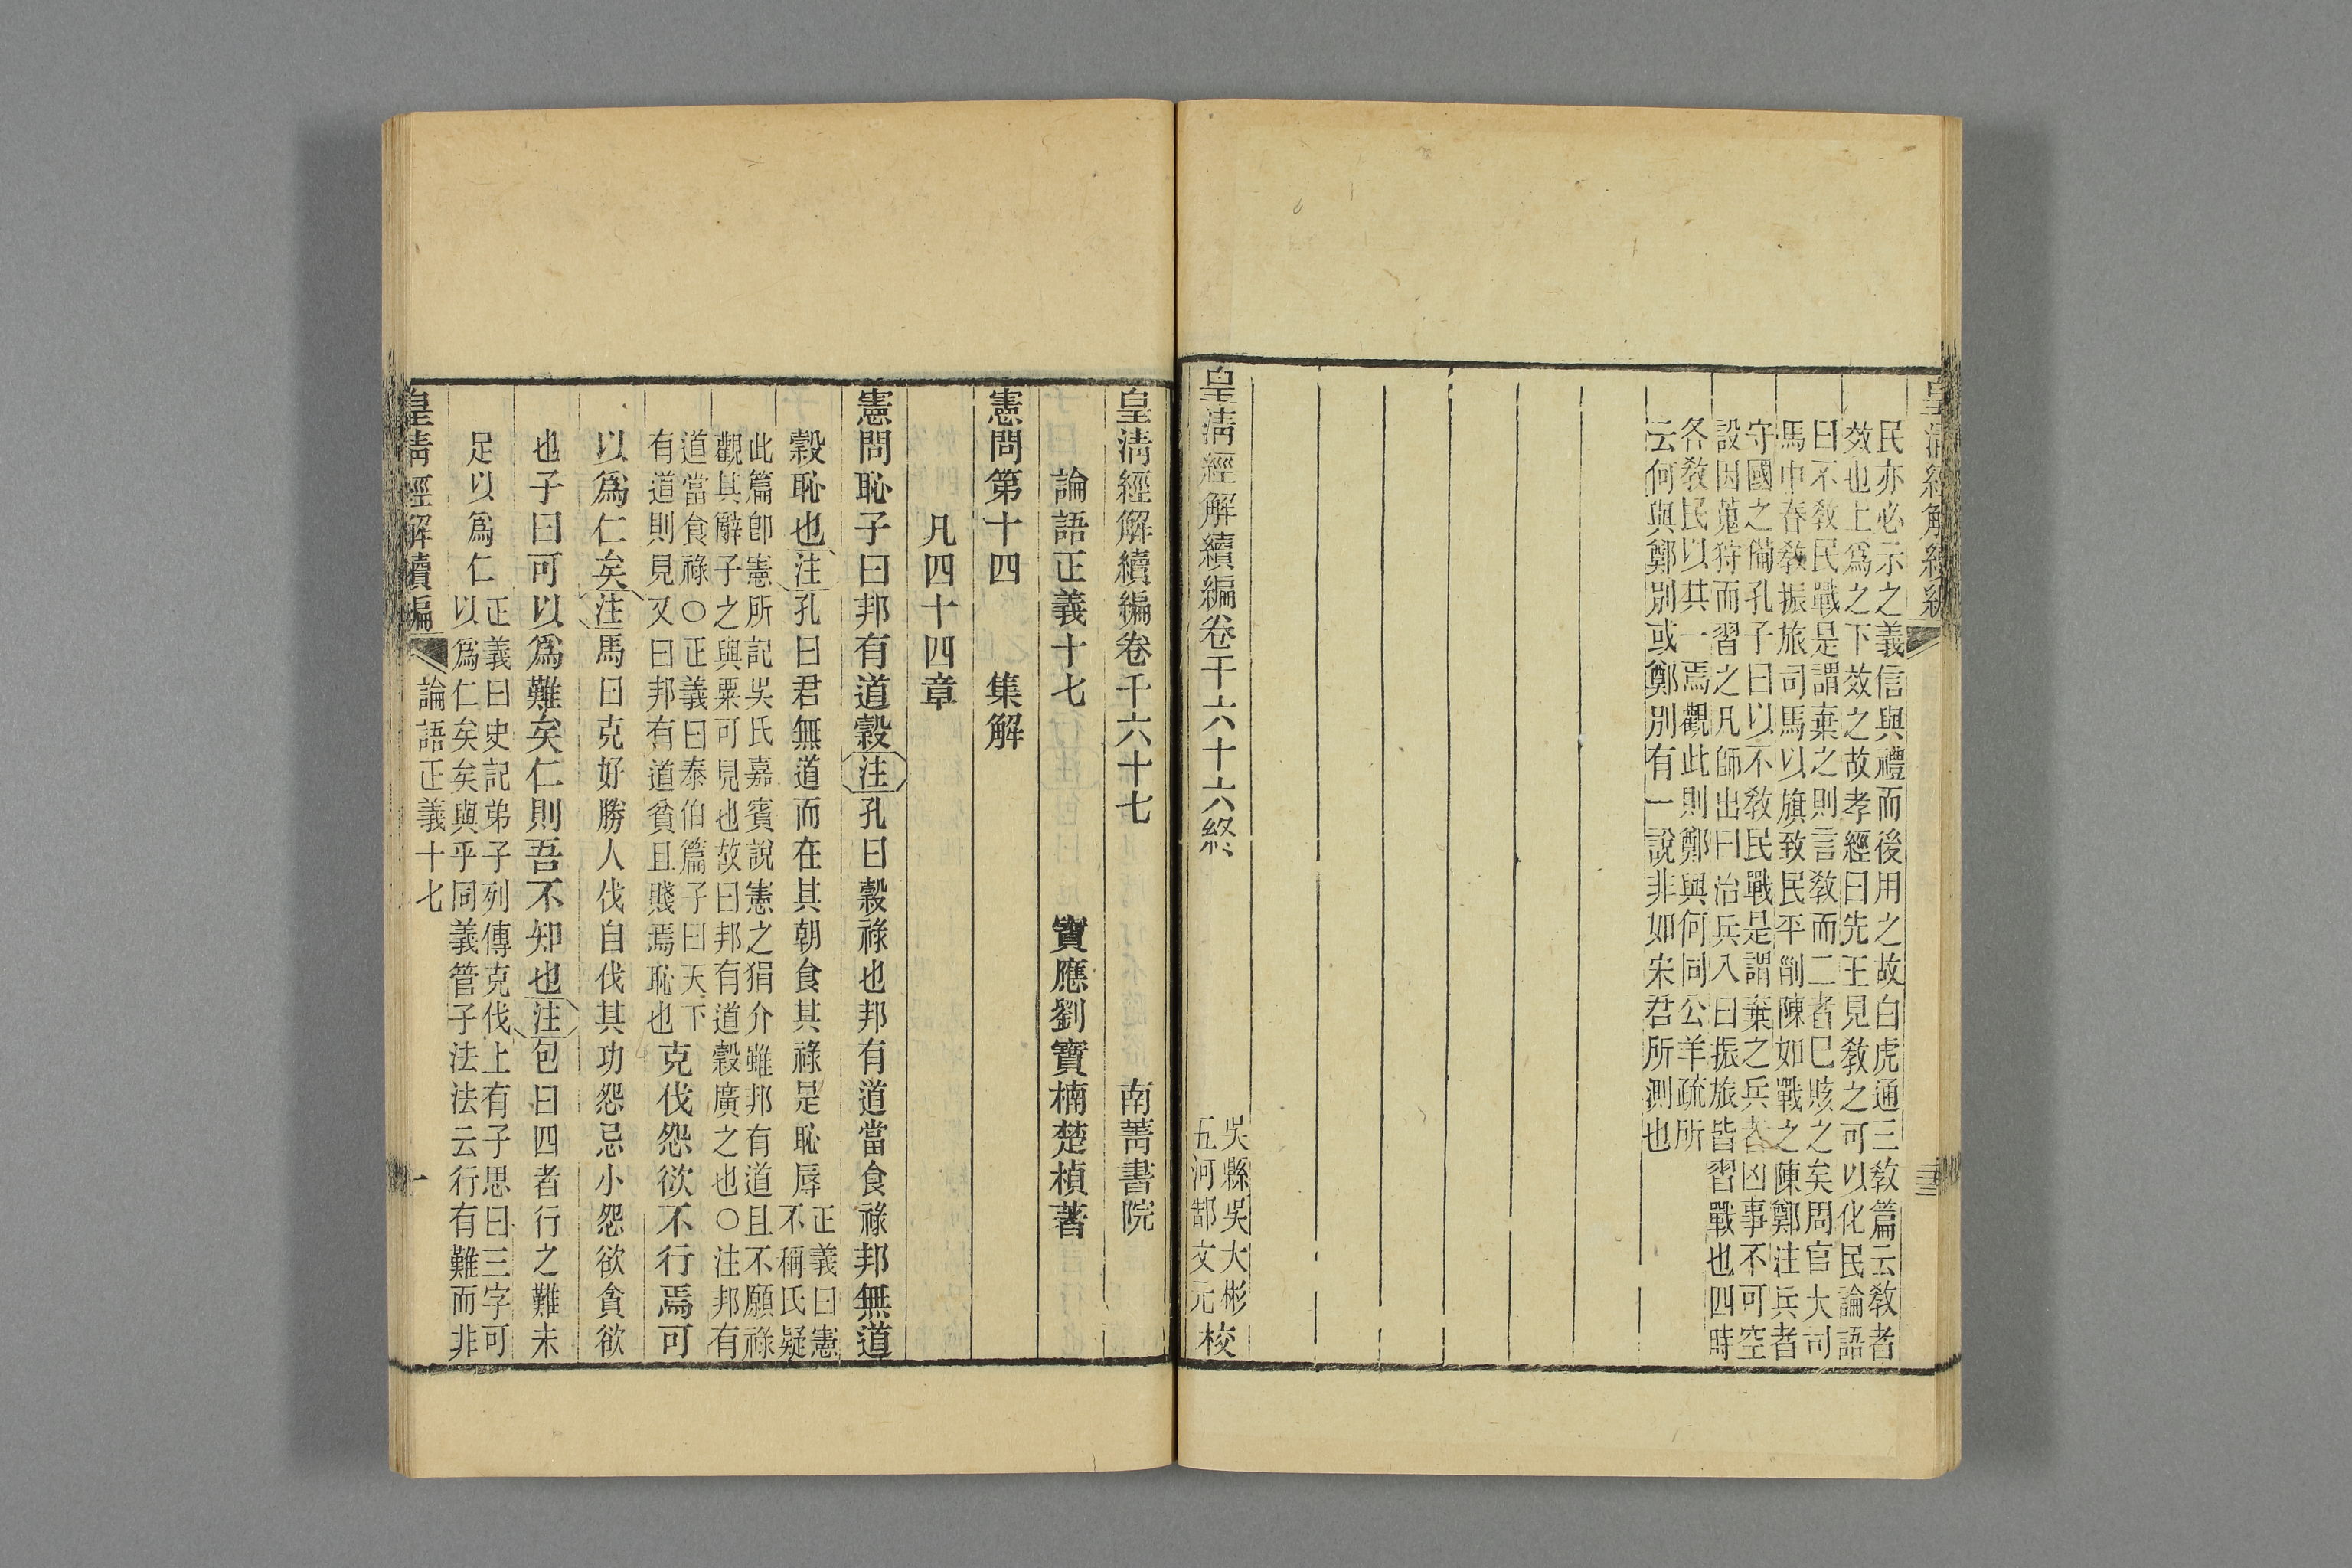 皇清經解續編
民亦必示之義信與禮而後用之故白虎通三敎篇云敎者
效也上爲之下效之故孝經曰先王見敎之可以化民論語
曰不敎民戰是謂棄之則言敎而二者巳賅之矣周官大司
馬中春敎振旅司馬以旗致民平㓡陳如戰之陳鄭注兵者
守國之備孔子曰以不敎民戰是謂棄之兵者凶事不可空
設因蒐狩而習之凡師出曰治兵入曰振旅皆習戰也四時
各敎民以其一焉觀此則鄭與何同公羊疏所
云何與鄭別或鄭別有一說非如宋君所測也
皇清經解續編卷千六十六終
吳縣吳大彬
五河郜文元
校
皇清經解續編卷千六十七
南菁書院
論語正義十七
寶應劉寶楠楚楨著
憲問第十四
集解
凡四十四章
憲問恥子曰邦有道穀注孔曰穀祿也邦有道當食祿邦無道
穀恥也注孔曰君無道而在其朝食其祿是恥辱
正義曰憲
不稱氏疑
此篇卽憲所記吳氏嘉賓說憲之狷介雖邦有道且不願祿
觀其辭子之與粟可見也故曰邦有道穀廣之也○注邦有
道當食祿○正義曰泰伯篇子曰天下
有道則見又曰邦有道貧且賤焉恥也
克伐怨欲不行焉可
以爲仁矣注馬曰克好勝人伐自伐其功怨忌小怨欲貪欲
也子曰可以爲難矣仁則吾不知也注包曰四者行之難未
足以爲仁
正義曰史記弟子列傳克伐上有子思曰三字可
以爲仁矣矣與乎同義管子法法云行有難而非
皇清經解續編
論語正義十七
一